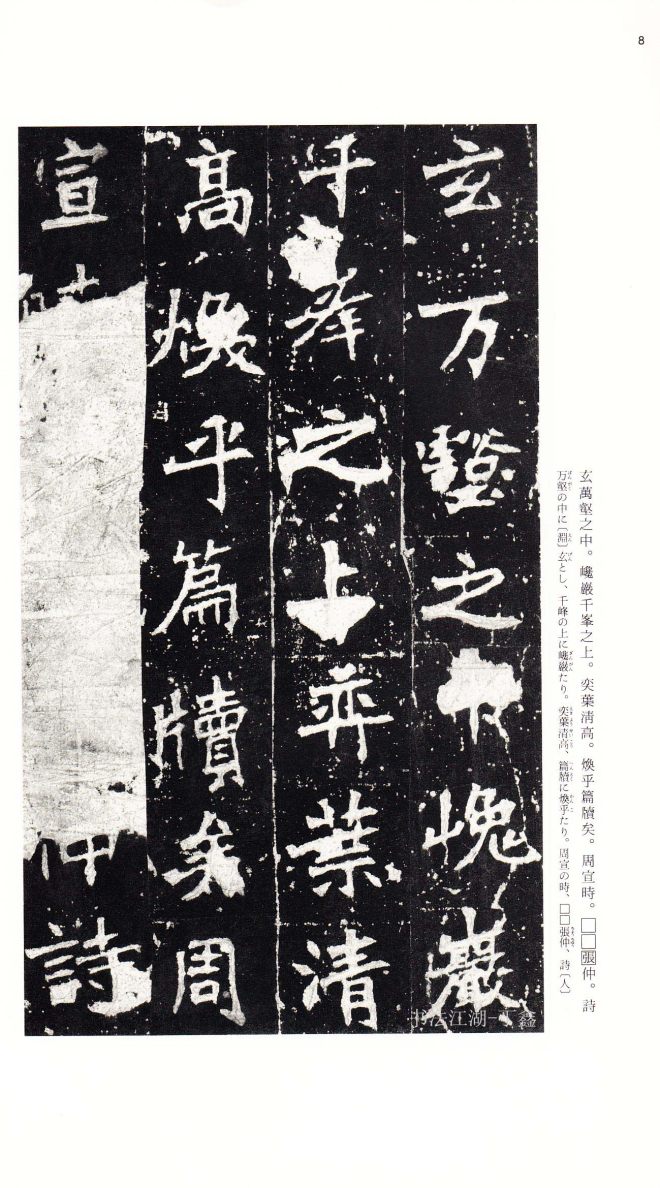 8
玄萬壑之中。巉巖千峯之上。奕葉清高。煥乎篇牘矣。周宣時。□□張仲。詩
万壑の中に〔淵〕玄とし、千峰の上に巉巌たり。奕葉清高、篇牘に煥乎たり。周宣の時、□□張仲、詩〔人〕
玄万壑之中巉巖
千峯之上弈葉清
高煥乎篇牘矣周
宣仲詩
书法江湖-鑫